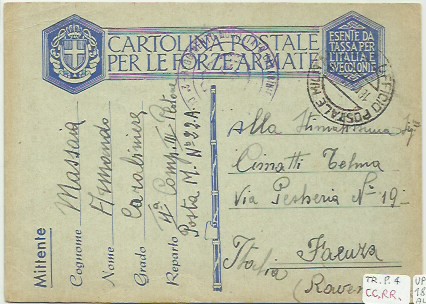 CARTOLINA POSTALE
PER LE FORZE ARMATE
ESENTE DA
TASSA PER
L'ITALIA E
SVECCIONE
UFFICIO POSTALE MILIT
Mittente
Cognome Massara
Nome Armando
Grado Carabiniere
Reparto IIª Comp. III Plotone
Posta M. Nº 22.A.
Alla Stimatissima Sig
Cimatti Telma
Via Pescheria Nº 19-
Faenza
Italia (Raven
TR. P. 4
CC.RR.
UP
18